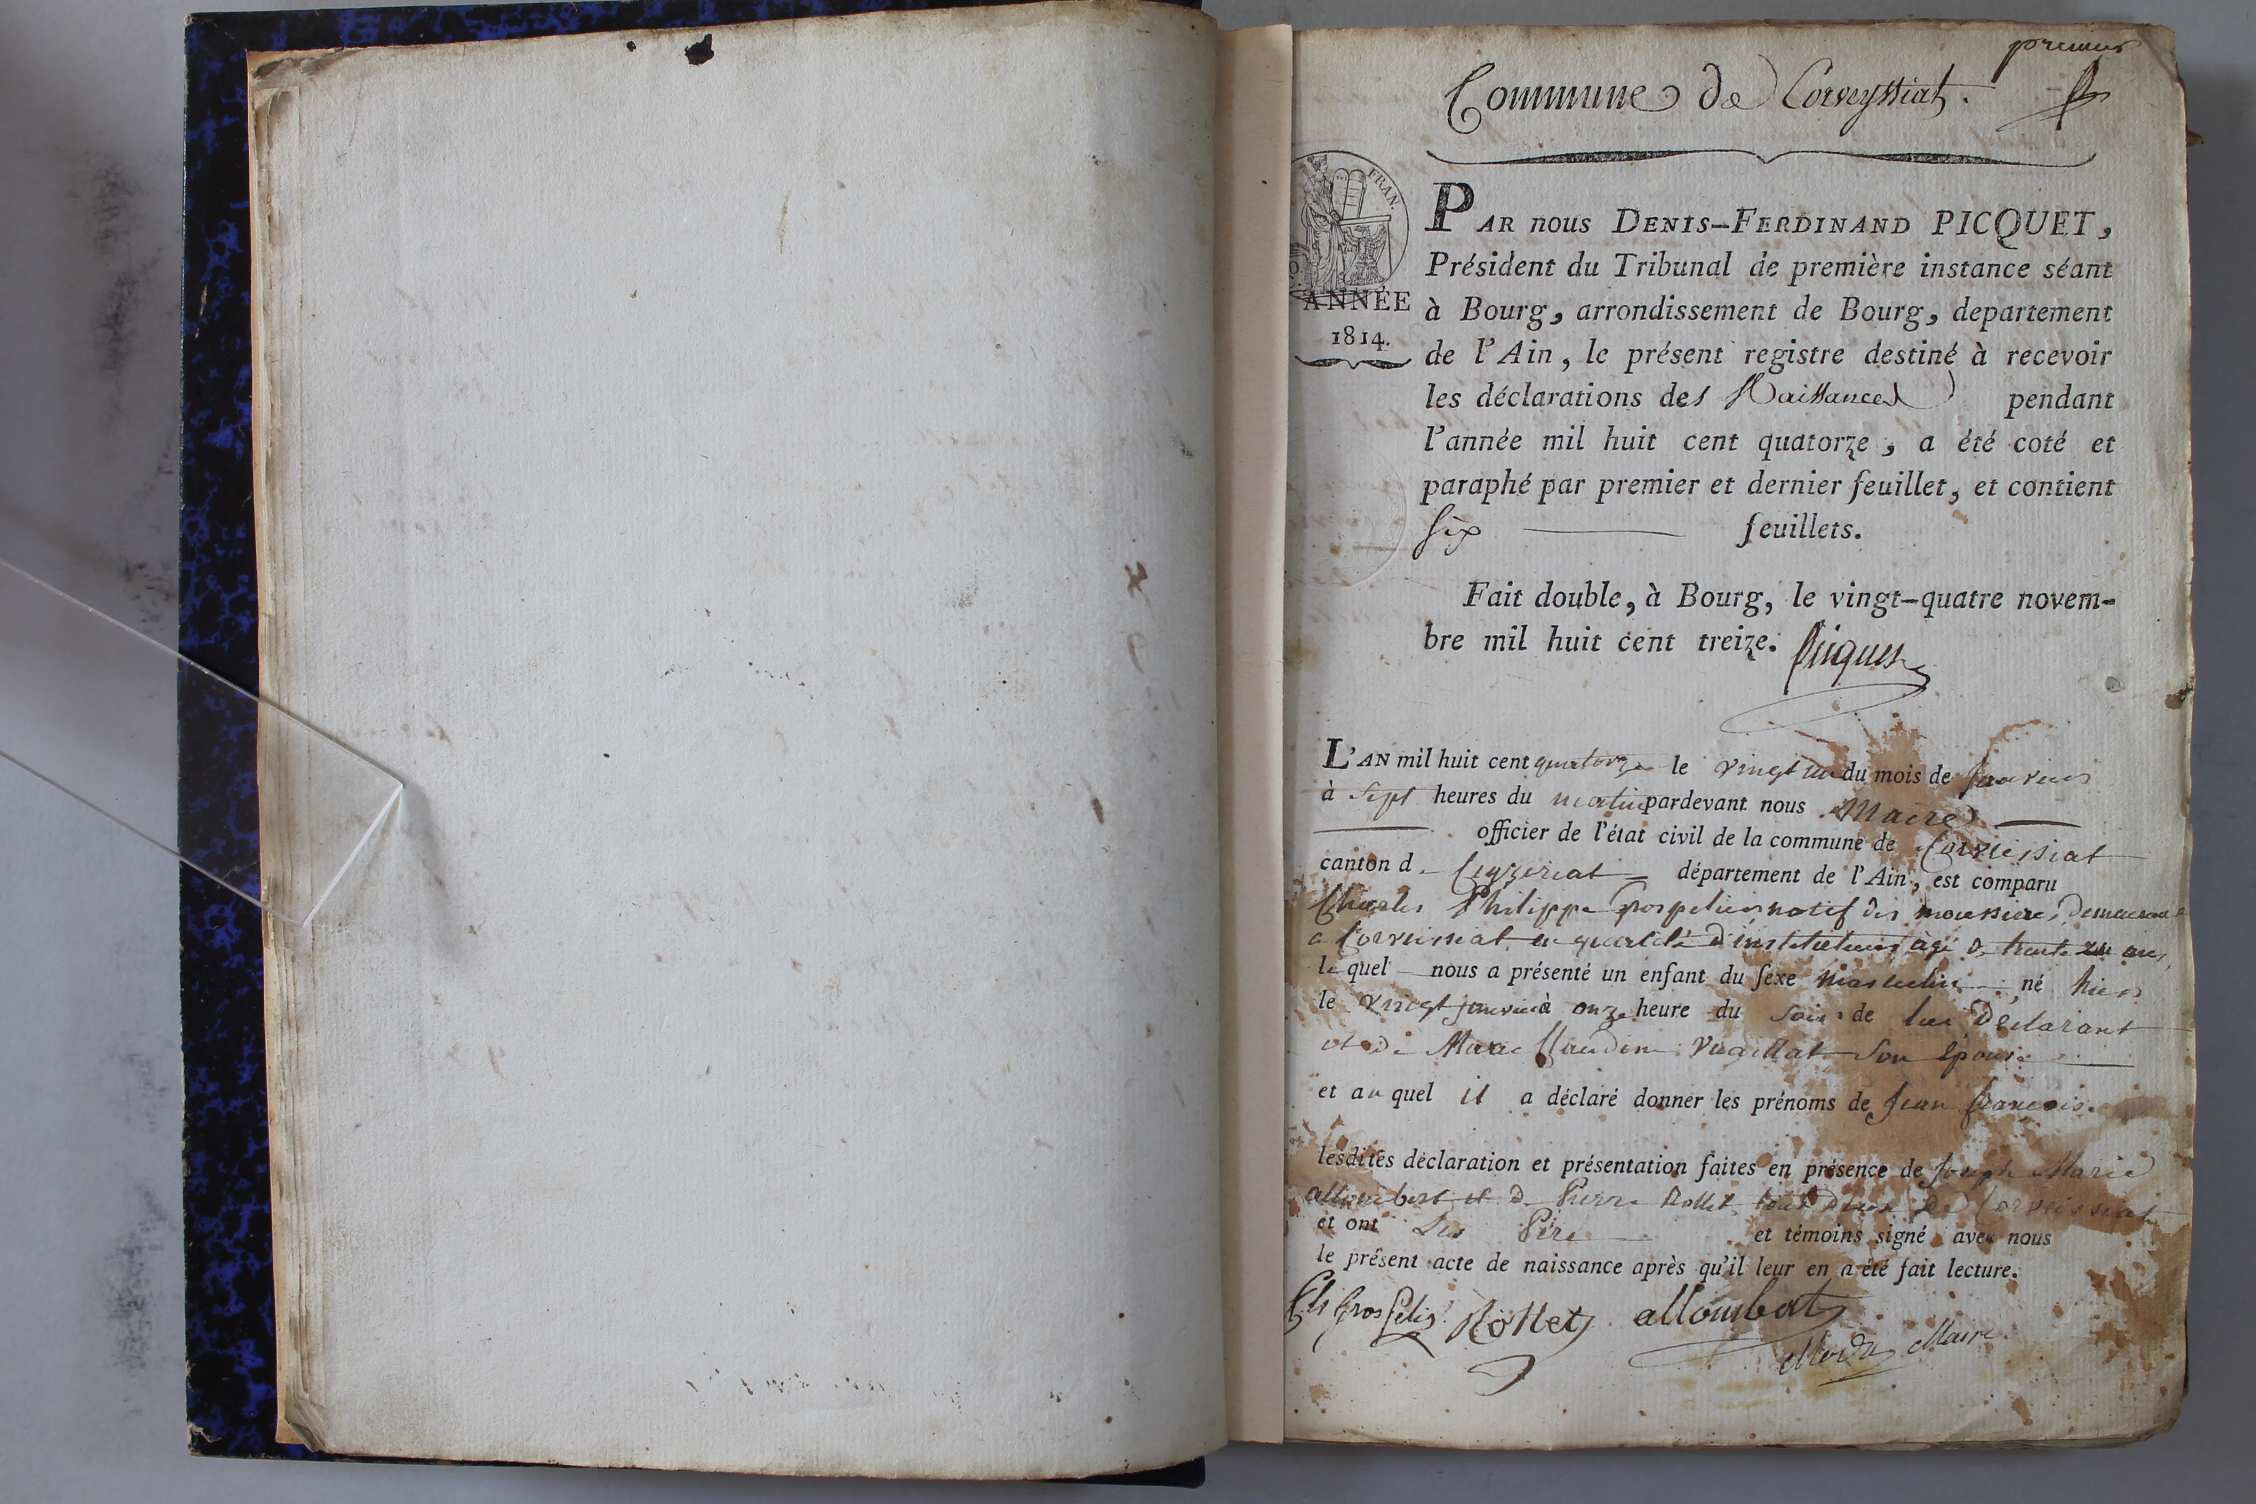 premier
Commune de Corveyssiat.
FRAN.
ANNÉE
1814.
PAR nous DENIS-FERDINAND PICQUET,
Président du Tribunal de première instance séant
à Bourg, arrondissement de Bourg, departement
de l'Ain, le présent registre destiné à recevoir
les déclarations des Naissances pendant
l'année mil huit cent quatorze, a été coté et
paraphé par premier et dernier feuillet, et contient
Six feuillets.
Fait double, à Bourg, le vingt-quatre novem-
bre mil huit cent treize. Picquet
L'AN mil huit cent quatorze le vingt un du mois de janvier
à Sept heures du matin pardevant nous Maire
officier de l'état civil de la commune de Corveissiat
canton de Ceyzeriat département de l'Ain, est comparu
Charles Philippe Grospelier natif des moussieres, demeurant
a Corveissiat en qualité d'instituteur âgé de trente un ans,
lequel nous a présenté un enfant du sexe masculin né hier
le vingt janvier à onze heure du soir de lui Déclarant
et de Marie Claudine Vuaillat Son Epouse
et au quel il a déclaré donner les prénoms de Jean françois.
lesdites déclaration et présentation faites en présence de Joseph Marie
allombert et de Pierre Rollet tout deux de Corveissiat
et ont Les Père et témoins signé avec nous
le présent acte de naissance après qu'il leur en a été fait lecture.
Rollet allombert
Maire